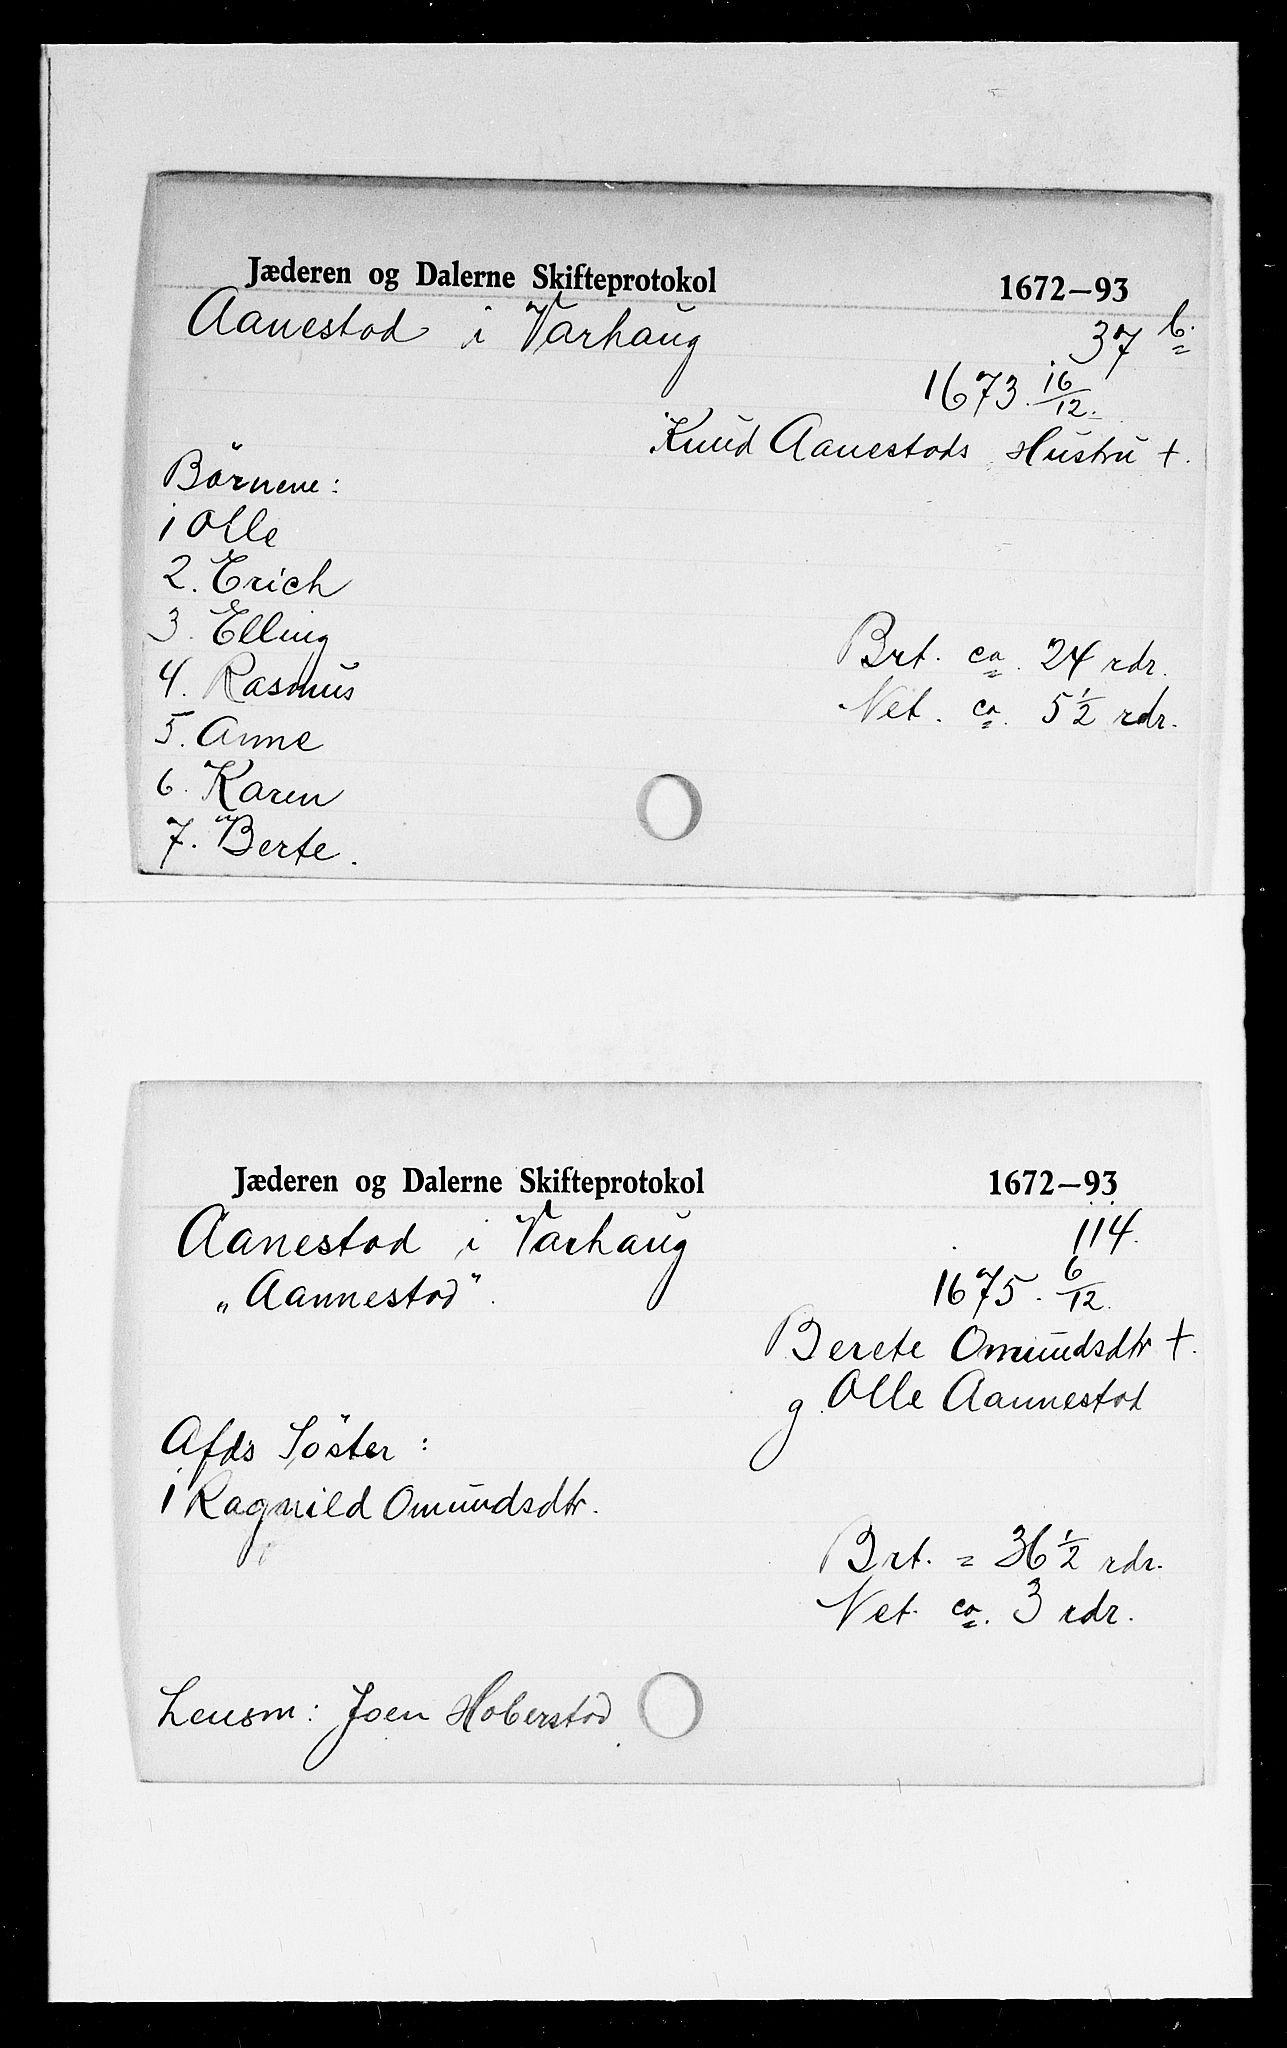 Jæderen og Dalerne Skifteprotokol 1672–93
Aanestad i Varhaug 37 b.
1673. 16/12.
Knud Aanestads Hustru †.
Børnene:
1 Olle
2. Erich
3. Elling
4. Rasmus
5. Anne
6. Karen
7. Berte.
Brt. ca. 24 rdr.
Net. ca. 5 1/2 rdr.
Jæderen og Dalerne Skifteprotokol 1672–93
Aanestad i Varhaug 114.
„Aannestad". 1675. 6/12.
Berete Omundsdtr †.
g. Olle Aannestad
Afds Søster:
1 Ragnild Omundsdtr.
Brt. = 36 1/2 rdr.
Net. ca. 3 rdr.
Lensm: Joen Hoberstad.